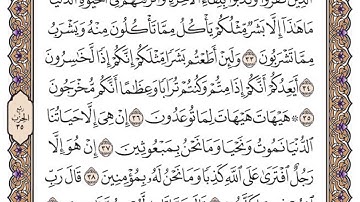 الَّذِينَ كَفَرُوا۟ وَكَذَّبُوا۟ بِلِقَآءِ ٱلْـَٔاخِرَةِ وَأَتْرَفْنَٰهُمْ فِى ٱلْحَيَوٰةِ ٱلدُّنْيَا
مَا هَٰذَآ إِلَّا بَشَرٌ مِّثْلُكُمْ يَأْكُلُ مِمَّا تَأْكُلُونَ مِنْهُ وَيَشْرَبُ
مِمَّا تَشْرَبُونَ ٣٣ وَلَئِنْ أَطَعْتُم بَشَرًا مِّثْلَكُمْ إِنَّكُمْ إِذًا لَّخَٰسِرُونَ
٣٤ أَيَعِدُكُمْ أَنَّكُمْ إِذَا مِتُّمْ وَكُنتُمْ تُرَابًا وَعِظَٰمًا أَنَّكُم مُّخْرَجُونَ
٣٥ ۞ هَيْهَاتَ هَيْهَاتَ لِمَا تُوعَدُونَ ٣٦ إِنْ هِىَ إِلَّا حَيَاتُنَا
ٱلدُّنْيَا نَمُوتُ وَنَحْيَا وَمَا نَحْنُ بِمَبْعُوثِينَ ٣٧ إِنْ هُوَ إِلَّا
رَجُلٌ ٱفْتَرَىٰ عَلَى ٱللَّهِ كَذِبًا وَمَا نَحْنُ لَهُۥ بِمُؤْمِنِينَ ٣٨ قَالَ رَبِّ
ربع
الحزب
٣٥